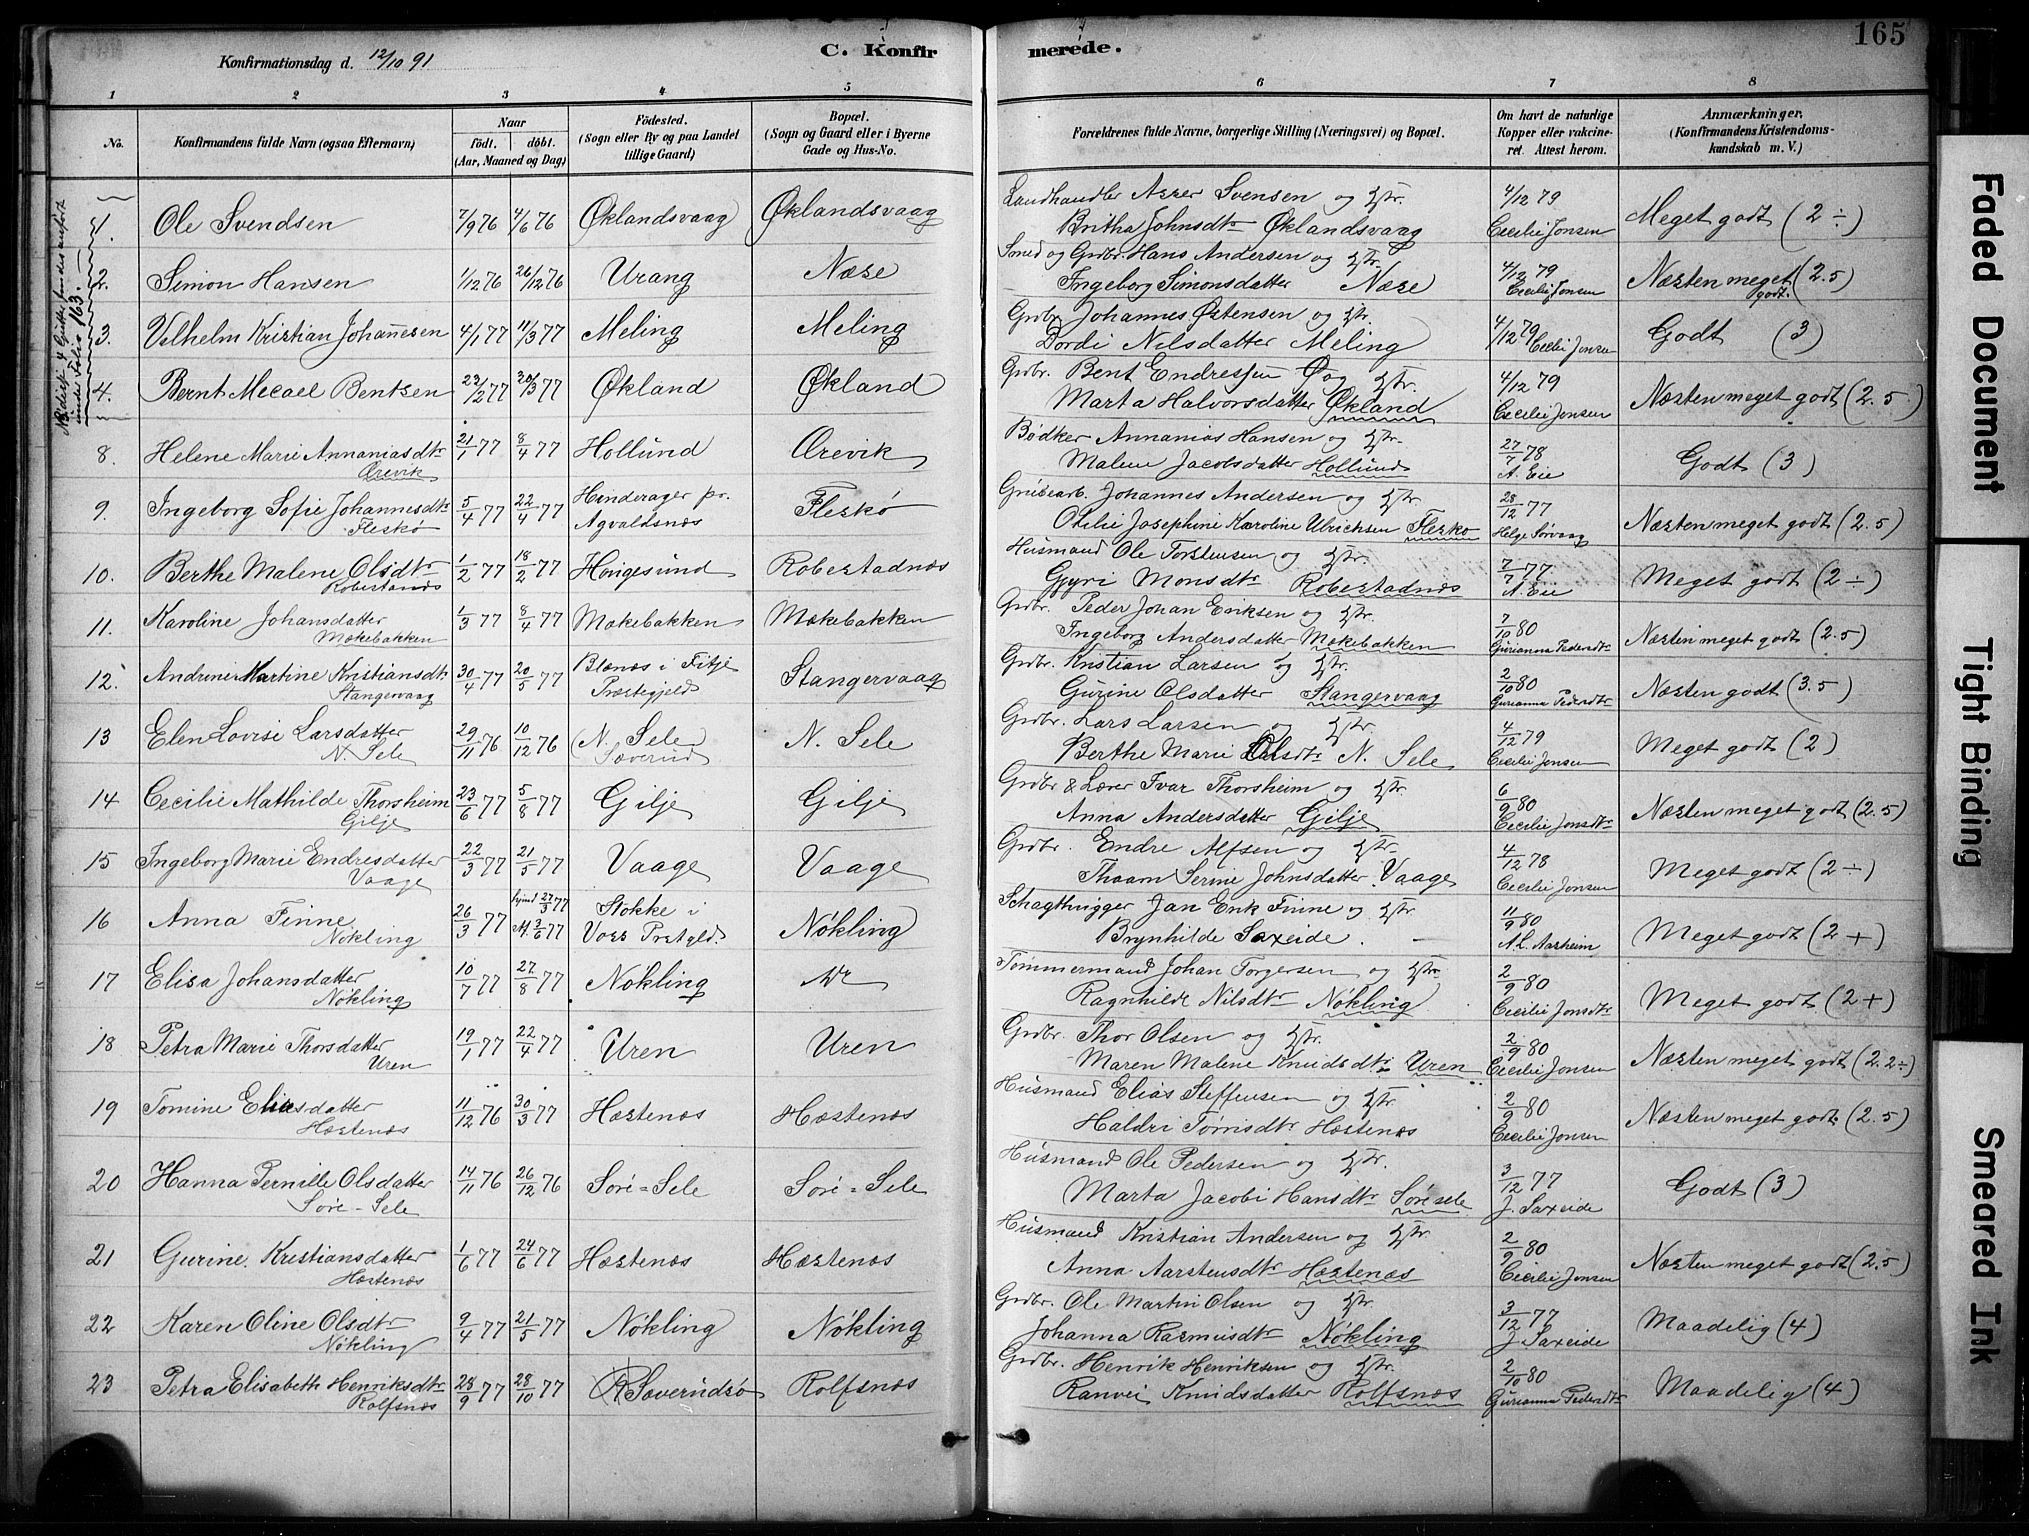 165
Konfirmationsdag d. 12/10 91
C. Konfirmerede.
1 2 3 4 5 6 7 8
No.
Konfirmandens fulde Navn (ogsaa Efternavn)
Naar
födt. döbt.
(Aar, Maaned og Dag)
Födested.
(Sogn eller By og paa Landet tillige Gaard)
Bopæl.
(Sogn og Gaard eller i Byerne Gade og Hus-No.
Forældrenes fulde Navne, borgerlige Stilling (Næringsvei) og Bopæl.
Om havt de naturlige Kopper eller vakcineret. Attest herom.
Anmærkninger.
(Konfirmandens Kristendomskundskab m. V.)
1. Ole Svendsen 7/9 76 4/6 76 Øklandsvaag Øklandsvaag Landhandler Asser Svensen og Hstr. 4/12 79 Meget godt (2 ÷)
Britha Johnsdtr Øklandsvaag Cecilie Jonsen
2. Simon Hansen 1/12 76 26/12 76 Urang Næse Smed og Grdbr. Hans Andersen og Hstr. 4/12 79 Næsten meget godt. (2.5)
Ingeborg Simonsdatter Næse Cecilie Jonsen
3. Vilhelm Kristian Johannesen 4/1 77 11/3 77 Meling Meling Grdbr. Johannes Østensen og Hstr. 4/12 79 Godt (3)
Dordi Nilsdatter Meling Cecilie Jonsen
4. Bernt Mecael Bentsen 22/2 77 30/3 77 Økland Økland Grdbr. Bent Endresen og Hstr. 4/12 79 Næsten meget godt (2.5)
Marta Halvorsdatter Økland Cecilie Jonsen
8. Helene Marie Annaniasdtr 21/1 77 8/4 77 Hollund Ørevik Bødker Annanias Hansen og Hstr. 27/7 78 Godt (3)
Ørevik Malene Jacobsdatter Hollund A. Eie
9. Ingeborg Sofie Johannesdtr 5/4 77 22/4 77 Hinderager pr. Agvaldsnæs Fleskø Grubearb. Johannes Andersen og Hstr. 28/12 77 Næsten meget godt (2.5)
Fleskø Otelie Josephine Karoline Ulrichsen Fleskø Helge Sørvaag
10. Berthe Malene Olsdtr 1/2 77 18/2 77 Hougesund Robestadnæs Husmand Ole Torstensen og Hstr. 7/7 77 Meget godt (2 ÷)
Robestanæs Gyri Monsdtr Robestadnæs A. Eie
11. Karoline Johansdatter 1/3 77 8/4 77 Mækebakken Mækebakken Grdbr. Peder Johan Eriksen og Hstr. 7/10 80 Næsten meget godt (2.5)
Mækebakken Ingeborg Andersdatter Mækebakken Gurianna Pedersdtr
12. Andrine Martine Kristiansdtr 30/4 77 20/5 77 Blænes i Fitje Præstegjeld Stangervaag Grdbr. Kristian Larsen og Hstr. 2/10 80 Næsten godt (3.5)
Stangervaag Gurine Olsdatter Stangervaag Gurianna Pedersdtr
13 Elen Lovise Larsdatter 29/11 76 10/12 76 (N. Sele) N. Sele Grdbr. Lars Larsen og Hstr. 4/12 79 Meget godt (2)
N. Sele Berthe Marie Olsdtr N. Sele Cecilie Jonsen
14 Cecilie Mathilde Thorsheim 23/6 77 5/8 77 Gilje Gilje Grdbr & Lærer Ivar Thorsheim og Hstr. 6/9 80 Næsten meget godt (2.5)
Gilje Anna Andersdatter Gilje Cecilie Jonsdtr
15 Ingeborg Marie Endresdatter 22/3 77 21/5 77 Vaage Vaage Grdbr. Endre Alfsen og Hstr. 4/12 78 Meget godt (2 ÷)
Vaage Serine Johnsdatter Vaage Cecilie Jonsen
16 Anna Finne 26/3 77 27/3 77 3/6 77 Stokke i Voss Prstgld. Nøkling Jan Erik Finne og Hstr. 11/9 80 Meget godt (2 +)
Nøkling Brynhilde Saxeide. A. L. Aarheim
17 Elisa Johansdatter 10/7 77 27/8 77 Nøkling Tømmermand Johan Torgersen og Hstr. 2/9 80 Meget godt (2 +)
Nøkling Ragnhilde Nilsdtr Nøkling Cecilie Jonsdtr
18 Petra Marie Thorsdatter 19/1 77 22/4 77 Uren Uren Grdbr. Thor Olsen og Hstr. 2/9 80 Næsten meget godt (2.2÷)
Uren Maren Malene Knudsdtr Uren Cecilie Jonsen
19 Tomine Eliasdatter 11/12 76 30/3 77 Hæstenæs Hæstenæs Husmand Elias Steffensen og Hstr. 2/9 80 Næsten meget godt (2.5)
Hæstenæs Haldri Tørrisdtr Hæstenæs Cecilie Jonsen
20 Hanna Pernille Olsdatter 14/11 76 26/12 76 Söre=Sele Söre=Sele Husmand Ole Pedersen og Hstr. 3/12 77 Godt (3)
Søre-Sele Marta Jacobi Hansdtr Søre sele J. Saxeide
21 Gurine Kristiansdatter 1/6 77 24/6 77 Hæstenæs Hæstenæs Husmand Kristian Andersen og Hstr. 2/9 80 Næsten meget godt (2.5)
Hæstenæs Anna Aarstensdtr Hæstenæs Cecilie Jonsen
22 Karen Oline Olsdtr 9/4 77 21/5 77 Nøkling Nøkling Grdbr. Ole Martin Olsen og Hstr. 3/12 77 Maadelig (4)
Nøkling Johanna Rasmusdtr Nøkling J. Saxeide
23 Petra Elisabeth Henriksdtr 28/9 77 28/10 77 Rolfsnæs Grdbr. Henrik Henriksen og Hstr. 2/10 80 Maadelig (4)
Rolfsnæs Ranvei Knudsdatter Rolfsnæs Gurianna Pedersdtr
Faded Document
Tight Binding
Smeared Ink